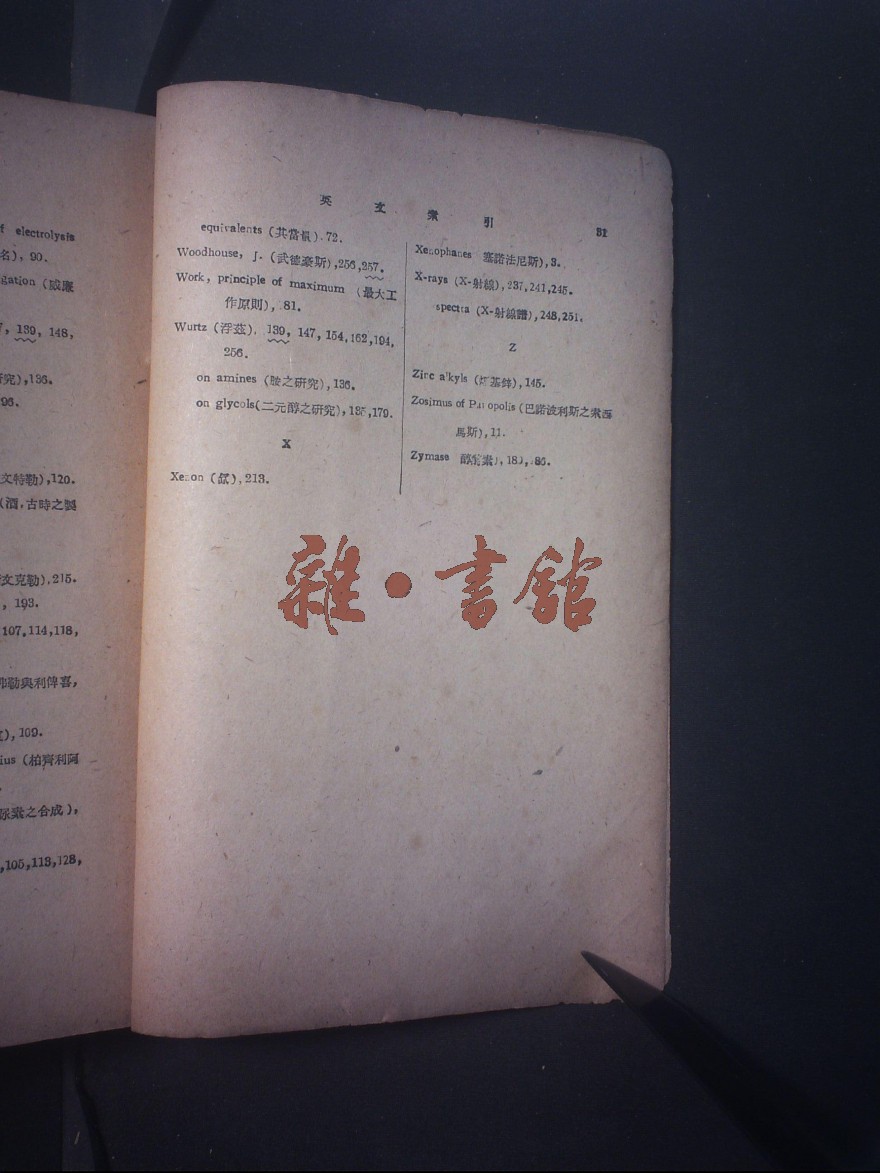 f electrolysis
名), 90.
gation (威廉
, 139, 148,
究),136.
96.
文特勒),120.
(酒,古時之製
文克勒).215.
, 193.
107,114,118,
弗勒與利俾喜,
), 109.
ius (柏齊利阿
尿素之合成),
,105,113,128,
英文索引 31
equivalents (其當量).72.
Woodhouse, J. (武德豪斯),256,257.
Work, principle of maximum (最大工
作原則), 81.
Wurtz (浮茲). 139, 147, 154,162,194,
256.
on amines (胺之研究), 136.
on glycols(二元醇之研究), 179.
X
Xenon (氙), 213.
Xenophanes 塞諾法尼斯),3.
X-rays (X-射線), 237,241,245.
spectra (X-射線譜),248,251.
Z
Zinc alkyls (烴基鋅), 145.
Zosimus of Panopolis (巴諾波利斯之索西
馬斯), 11.
Zymase
雜·書館